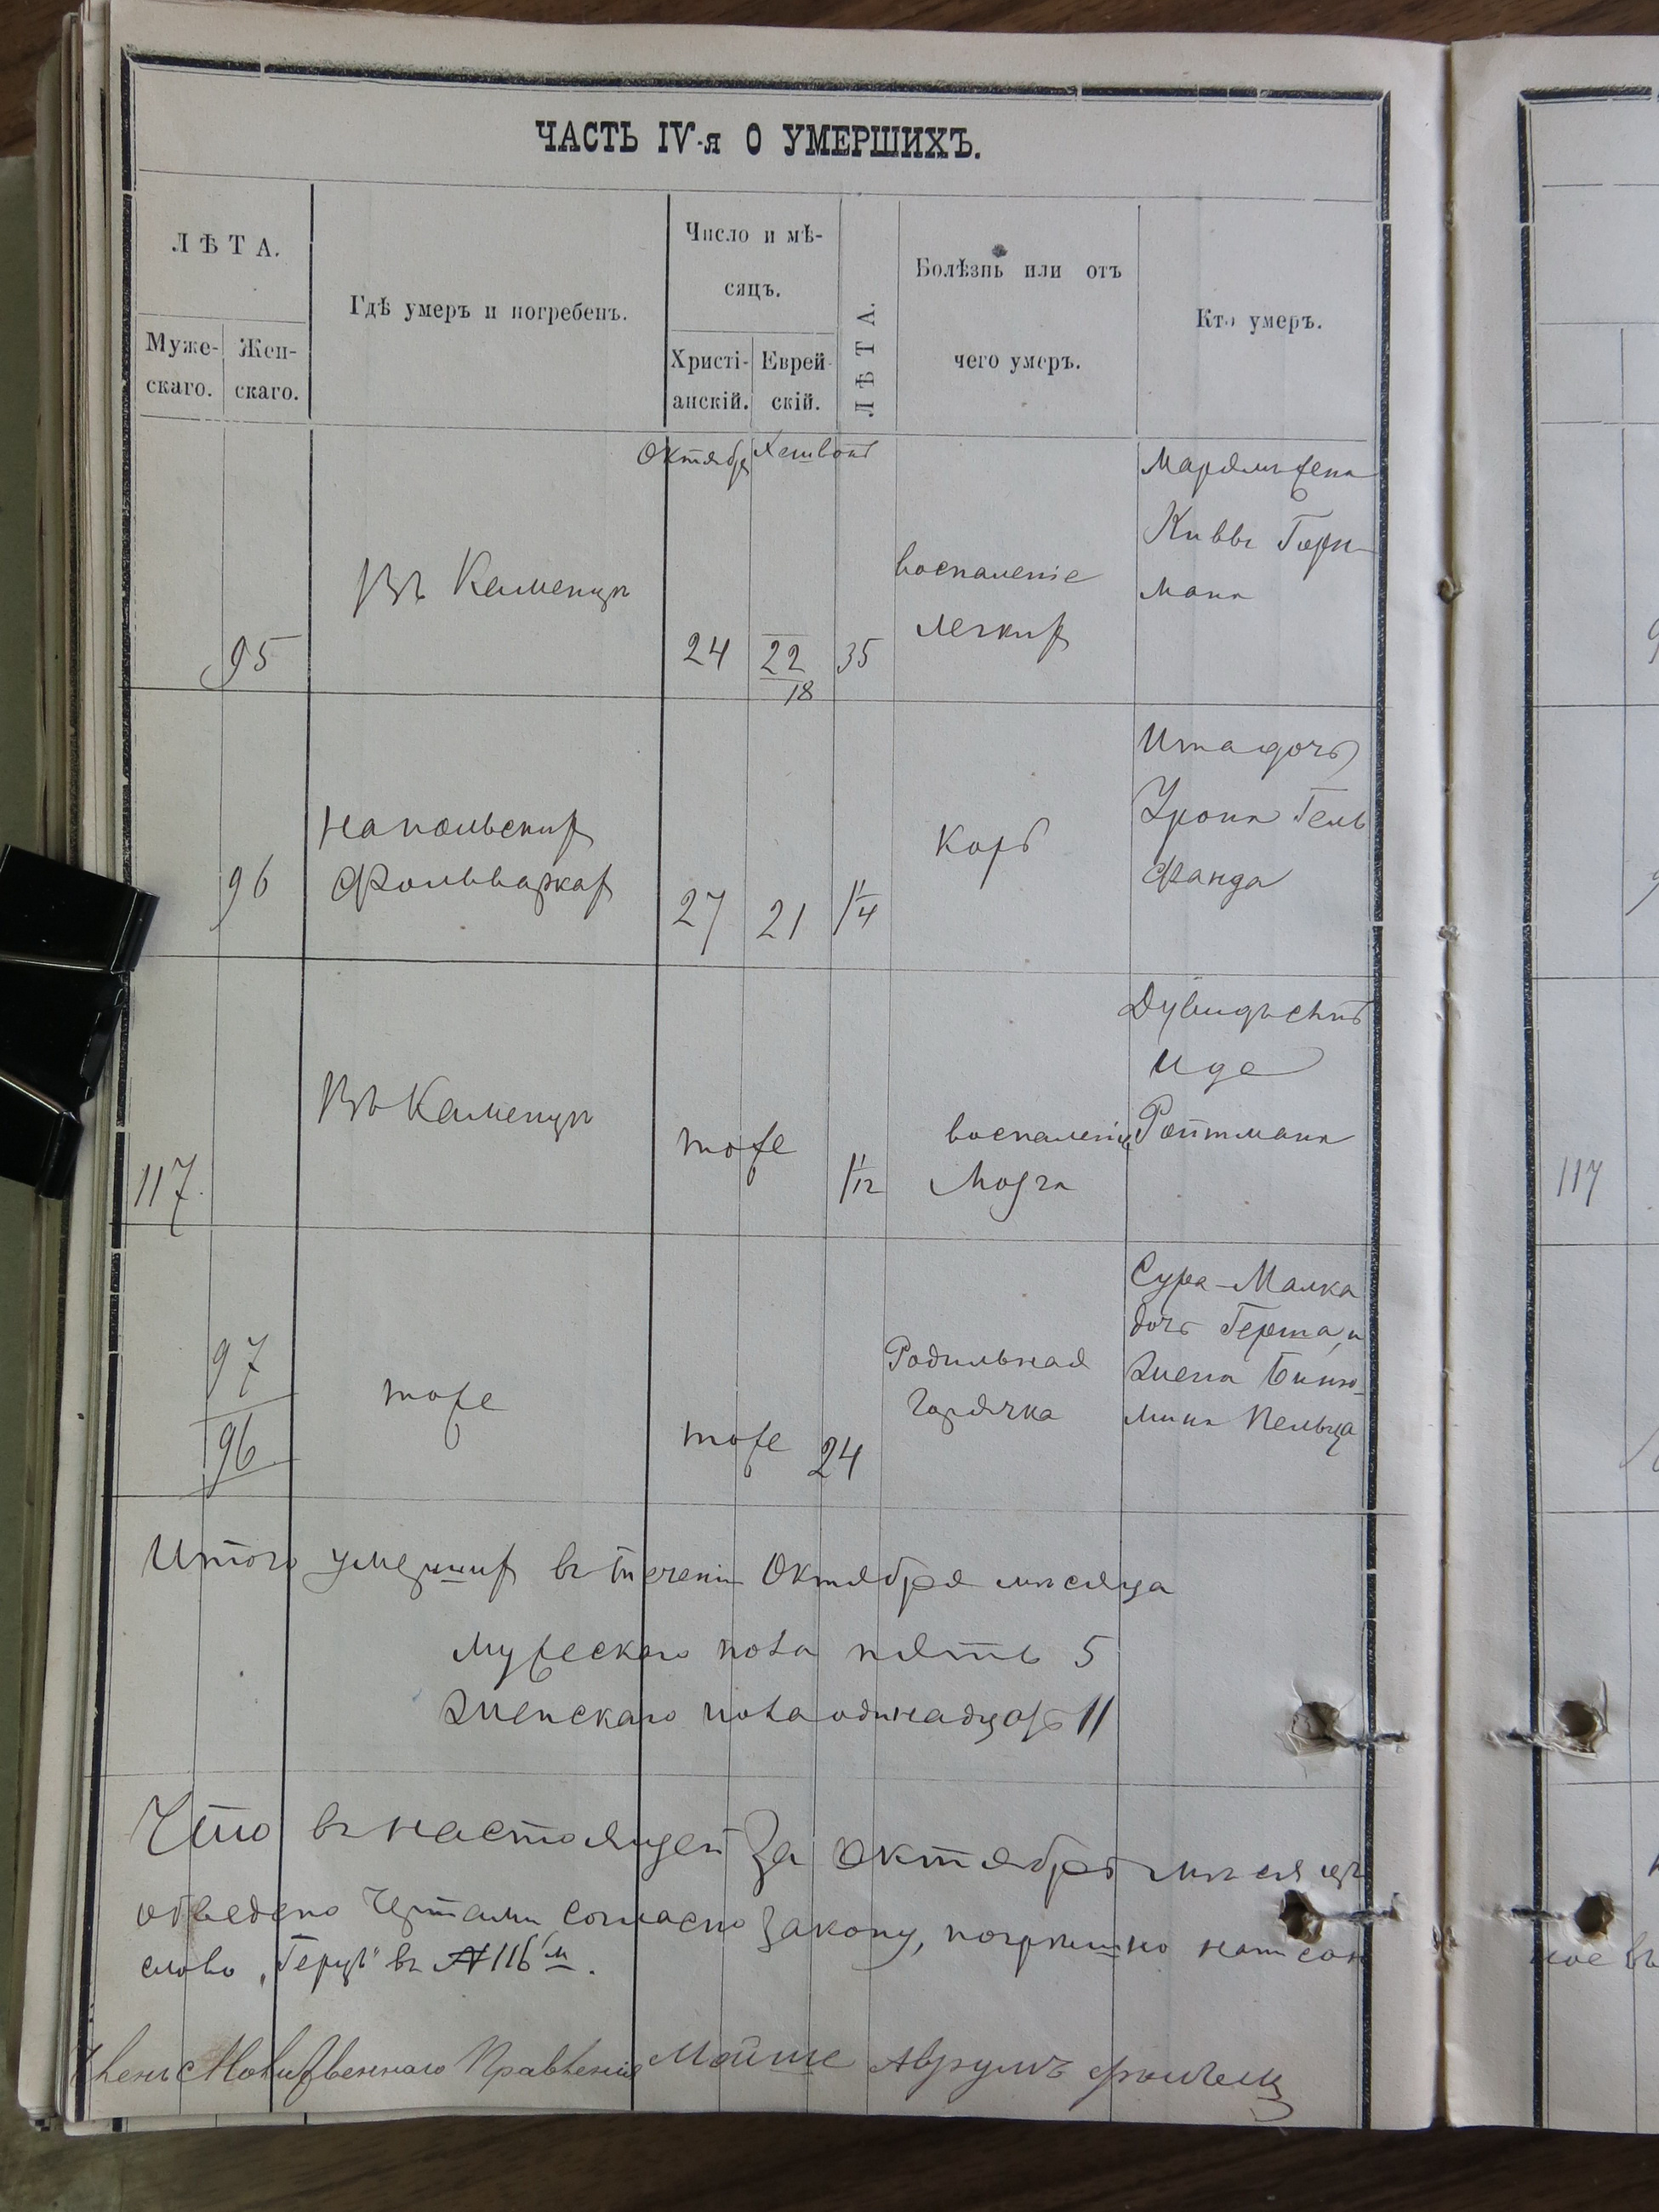 ЧАСТЬ IV-я О УМЕРШИХЪ.
ЛѢТА.
Муже-
скаго.
Жен-
скаго.
Гдѣ умеръ и погребенъ.
Число и мѣ-
сяцъ.
Христі-
анскій.
Еврей-
скій.
ЛѢТА.
Болѣзнь или отъ
чего умеръ.
Кто умеръ.
Октябрь Хешвонъ
95
Въ Каменцѣ
24
22
18
35
воспаленіе
легкихъ
Марьямъ жена
Кивы
мана
96
На польскихъ
фольваркахъ
27
21
1/4
Корь
Ита дочь
Урона Гель
фанда
117
Въ Каменцѣ
тоже
1/12
воспаленіе
мозга
Дувидъ сынъ
Иде
Ройтмана
97
96
тоже
тоже
24
Родильная
Горячка
Сура-Малка
дочь
жена Биню-
мина Пельца
Итого умершихъ въ теченіи Октября мѣсяца
Мужескаго пола пять 5
Женскаго пола одинадцать 11
Что въ настоящей за Октябрь мѣсяцъ
обведено чертами согласно закону, погрѣшно написан
слово „Герцъ" въ № 116м.
Членъ Молитвеннаго Правленія Мойше Аврумъ
117
ное въ